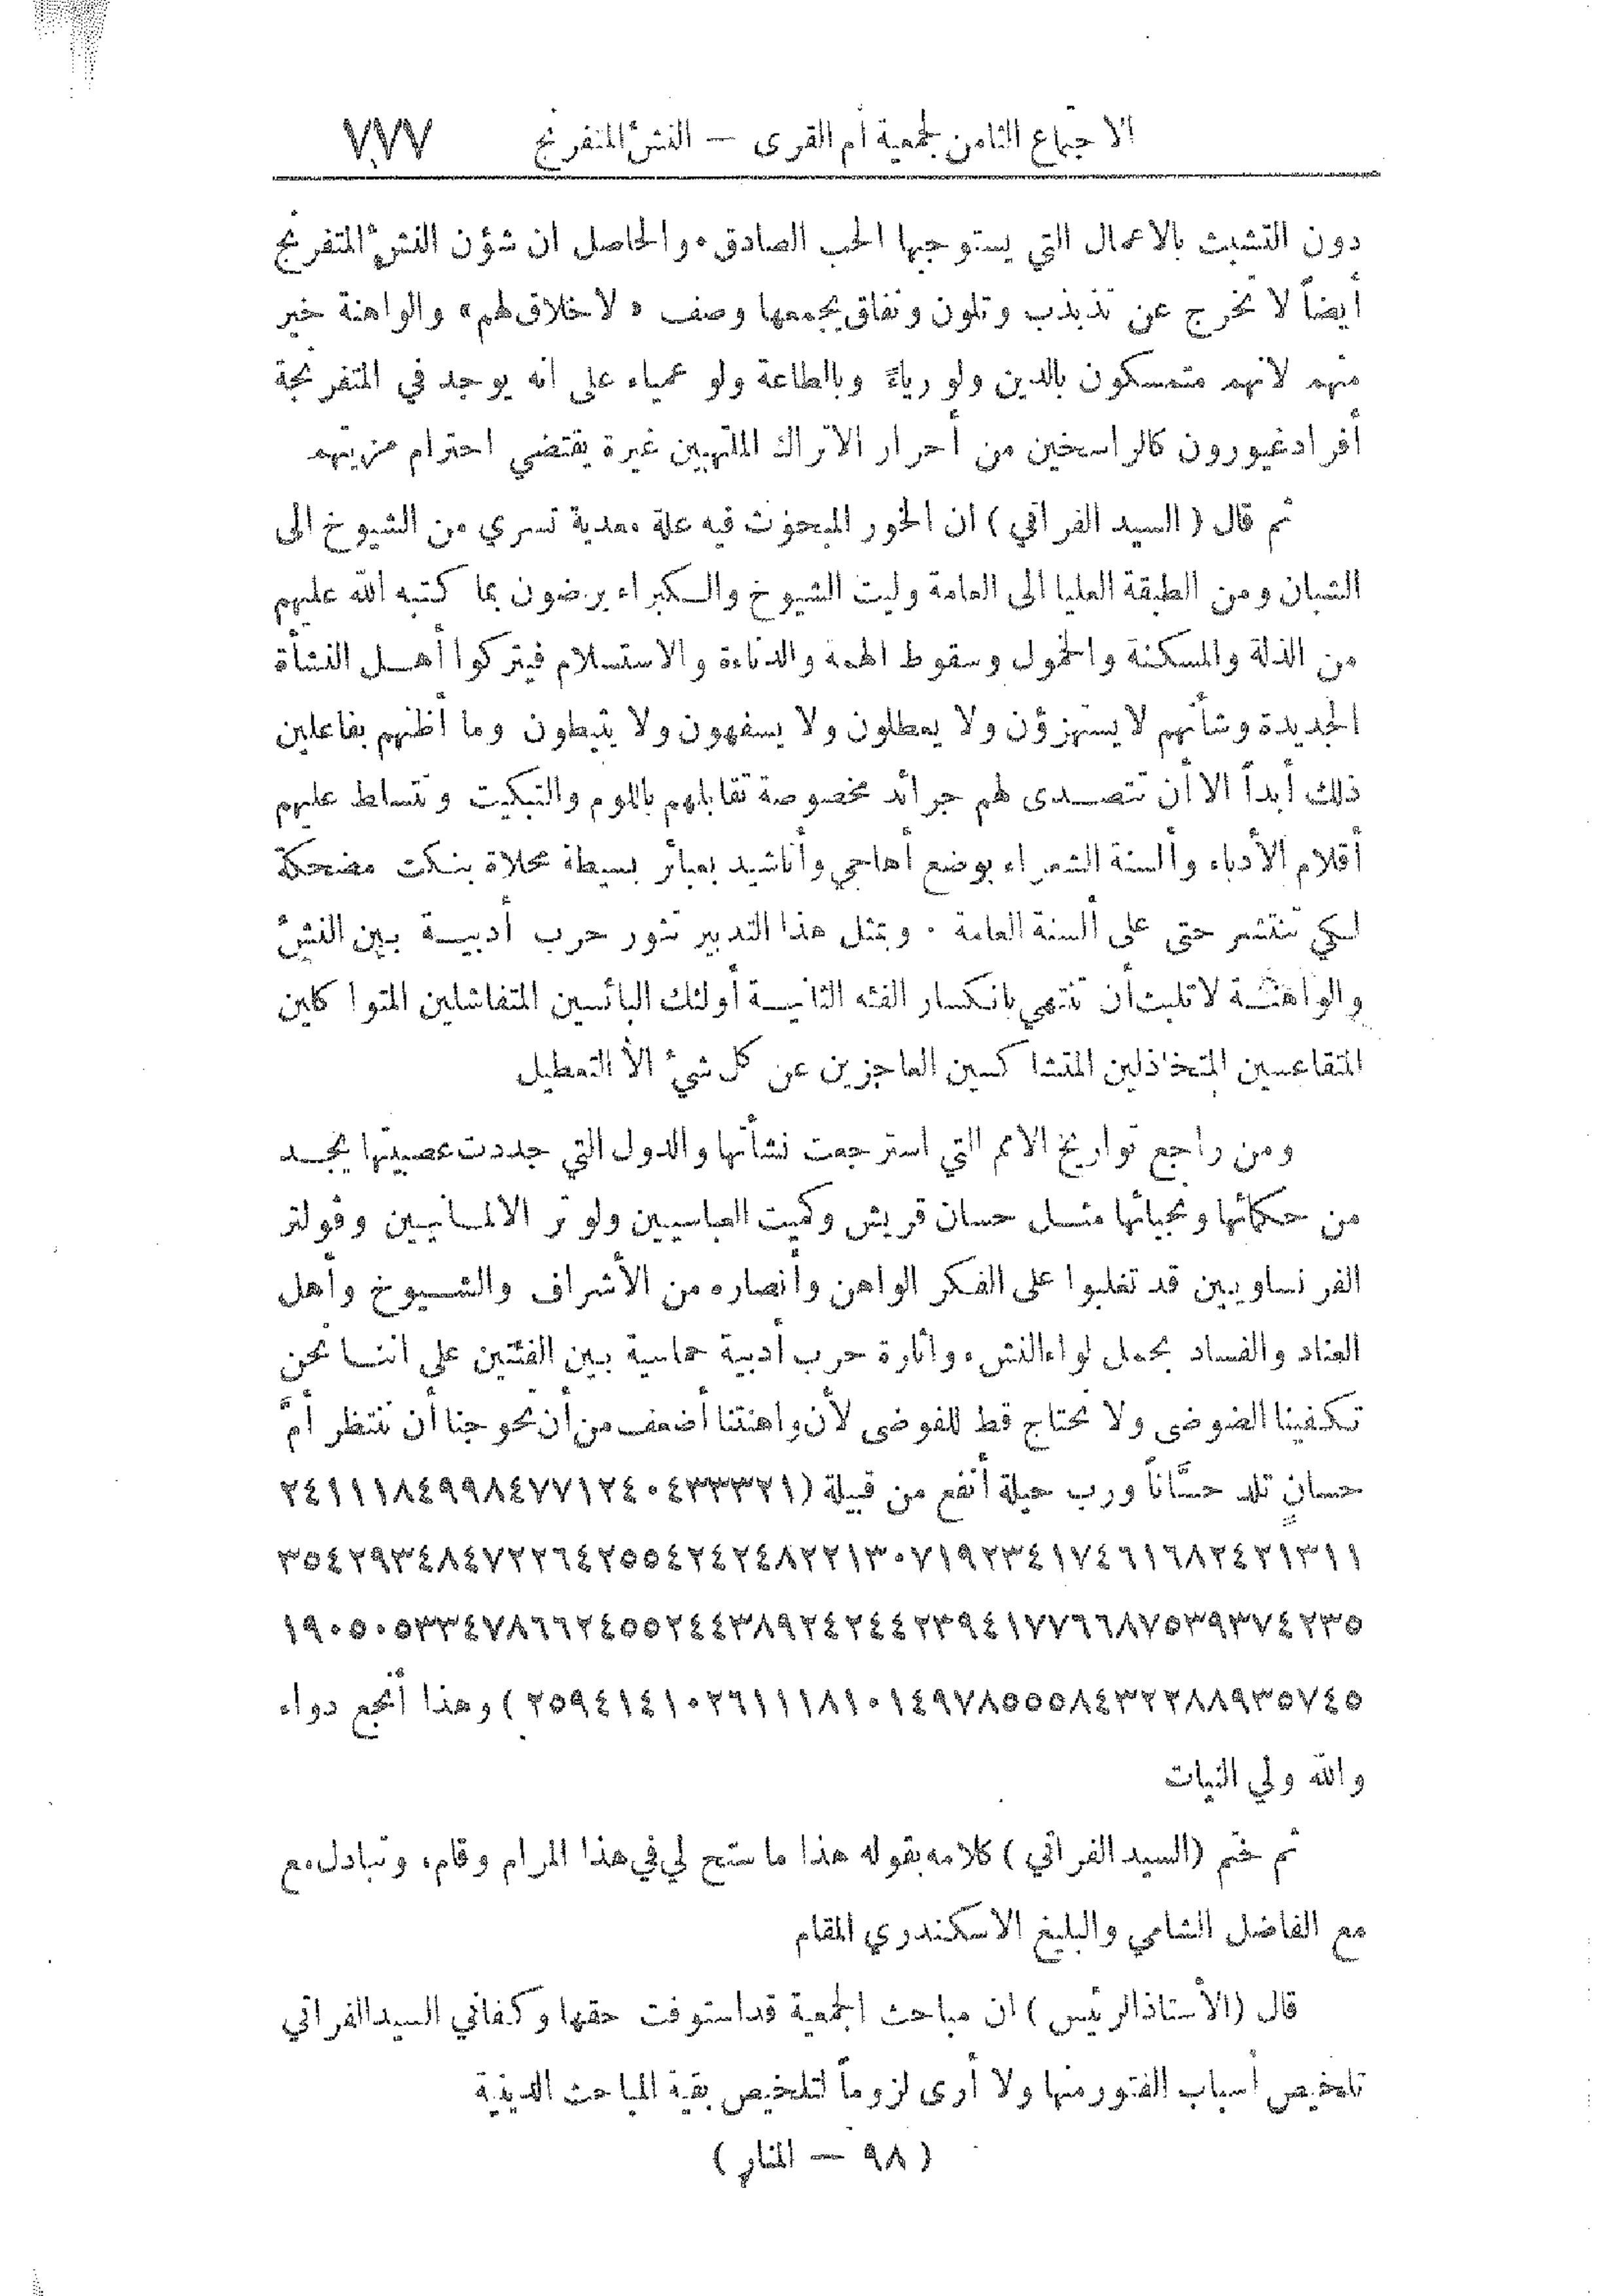 الاجتماع الثامن لجمعية أم القرى — النشءُ المتفرنج ٧٧٧
دون التشبث بالاعمال التي يستوجبها الحب الصادق. والحاصل ان شؤن النشءِ المتفرنج
أيضاً لا تخرج عن تذبذب وتلون ونفاق يجمعها وصف « لاخلاق لهم» والواهنة خير
منهم لانهم متمسكون بالدين ولو رياءً وبالطاعة ولو عمياء على انه يوجد في المتفرنجة
أفراد غيورون كالراسخين من أحرار الاتراك الملتهبين غيرة يقتضي احترام مزيتهم
ثم قال ( السيد الفراتي ) ان الخور المبحوث فيه علة معدية تسري من الشيوخ الى
الشبان ومن الطبقة العليا الى العامة وليت الشيوخ والكبراء يرضون بما كتبه الله عليهم
من الذلة والمسكنة والخمول وسقوط الهمة والدناءة والاستسلام فيتركوا أهل النشأة
الجديدة وشأنهم لا يستهزؤن ولا يعطلون ولا يسفهون ولا يثبطون وما أظنهم بفاعلين
ذلك أبداً الا أن تتصدى لهم جرائد مخصوصة تقابلهم باللوم والتبكيت وتتسلط عليهم
أقلام الأدباء وألسنة الشعراء بوضع أهاجي وأناشيد بعبائر بسيطة محلاة بنكت مضحكة
لكي تنتشر حتى على ألسنة العامة . وبمثل هذا التدبير تثور حرب أدبية بين النشءُ
والواهنة لا تلبث أن تنتهي بانكسار الفئه الثانية أولئك البائسين المتفاشلين المتواكلين
المتقاعسين المتخاذلين المتشاكسين العاجزين عن كل شيءُ الا التعطيل
ومن راجع تواريخ الامم التي استرجعت نشأتها والدول التي جددت عصبيتها يجد
من حكمائها ونجبائها مثل حسان قريش وكميت العباسيين ولوثر الالمانيين وفولتر
الفرنساويين قد تغلبوا على الفكر الواهن وأنصاره من الأشراف والشيوخ وأهل
العناد والفساد بحمل لواء النشء وأثارة حرب أدبية حماسية بين الفئتين على اننا نحن
تكفينا الضوضى ولا نحتاج قط للفوضى لأن واهنتنا أضعف من أن تحوجنا أن ننتظر أمَّ
حسانٍ تلد حسَّاناً ورب حيلة أنفع من قبيلة (٢٤١١١٨٤٩٩٨٤٧٧١٢٤٠٤٣٣٣٢١
٣٥٤٢٩٣٤٨٤٧٢٢٦٤٢٥٥٤٢٤٢٤٨٢٢١٣٠٧١٩٢٣٤١٧٤٦١٦٨٢٤٢١٣١١
١٩٠٥٠٥٣٣٤٧٨٦٦٢٤٥٥٢٤٤٣٨٩٢٤٢٤٤٢٣٩٤١٧٧٦٦٨٧٥٣٩٣٧٤٢٣٥
٢٥٩٤١٤١٠٢٦١١١٨١٠١٤٩٧٨٥٥٥٨٤٣٢٢٨٨٩٣٥٧٤٥ ) وهذا أنجع دواء
والله ولي النيات
ثم ختم (السيد الفراتي ) كلامه بقوله هذا ما سنح لي في هذا المرام وقام، وتبادل مع
مع الفاضل الشامي والبليغ الاسكندري المقام
قال (الأستاذ الرئيس ) ان مباحث الجمعية قد استوفت حقها وكفاني السيد الفراتي
تلخيص أسباب الفتور منها ولا أرى لزوماً لتلخيص بقية المباحث الدينية
( ٩٨ — المنار )